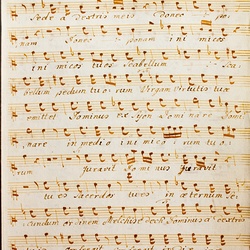 Sede a dextris meis Donec po=
nam Donec ponam inimicos
inimicos tuos Scabellum Sca=
bellum pedum tuorum Virgam virtutis tuæ
emittet Dominus ex Syon Dominare Domi=
nare in medio inimicorum tuo=
rum Juravit Dominus Juravit
tu es Sacerdos tu es in æternum Se=
cundum ordinem Melchisedech Dominus a dextris